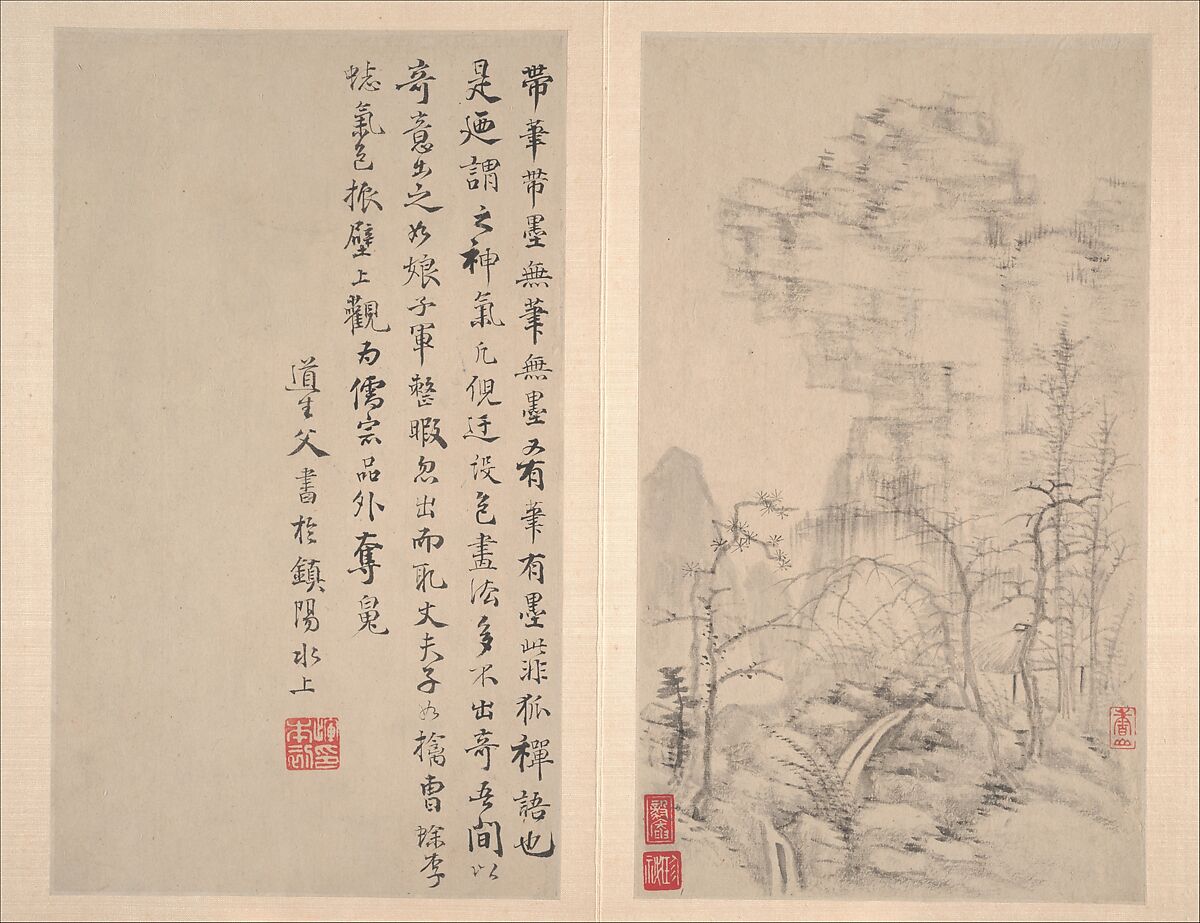 帶筆帶墨無筆無墨又有筆有墨此非狐禪語也
是迺謂之神氣凡倪迂設色畫法多不出奇吾間以
奇意出之如娘子軍整暇忽出而耴丈夫子如擒曹
氣色振壁上觀為儒宗品外奪
道生父書於鎮陽水上